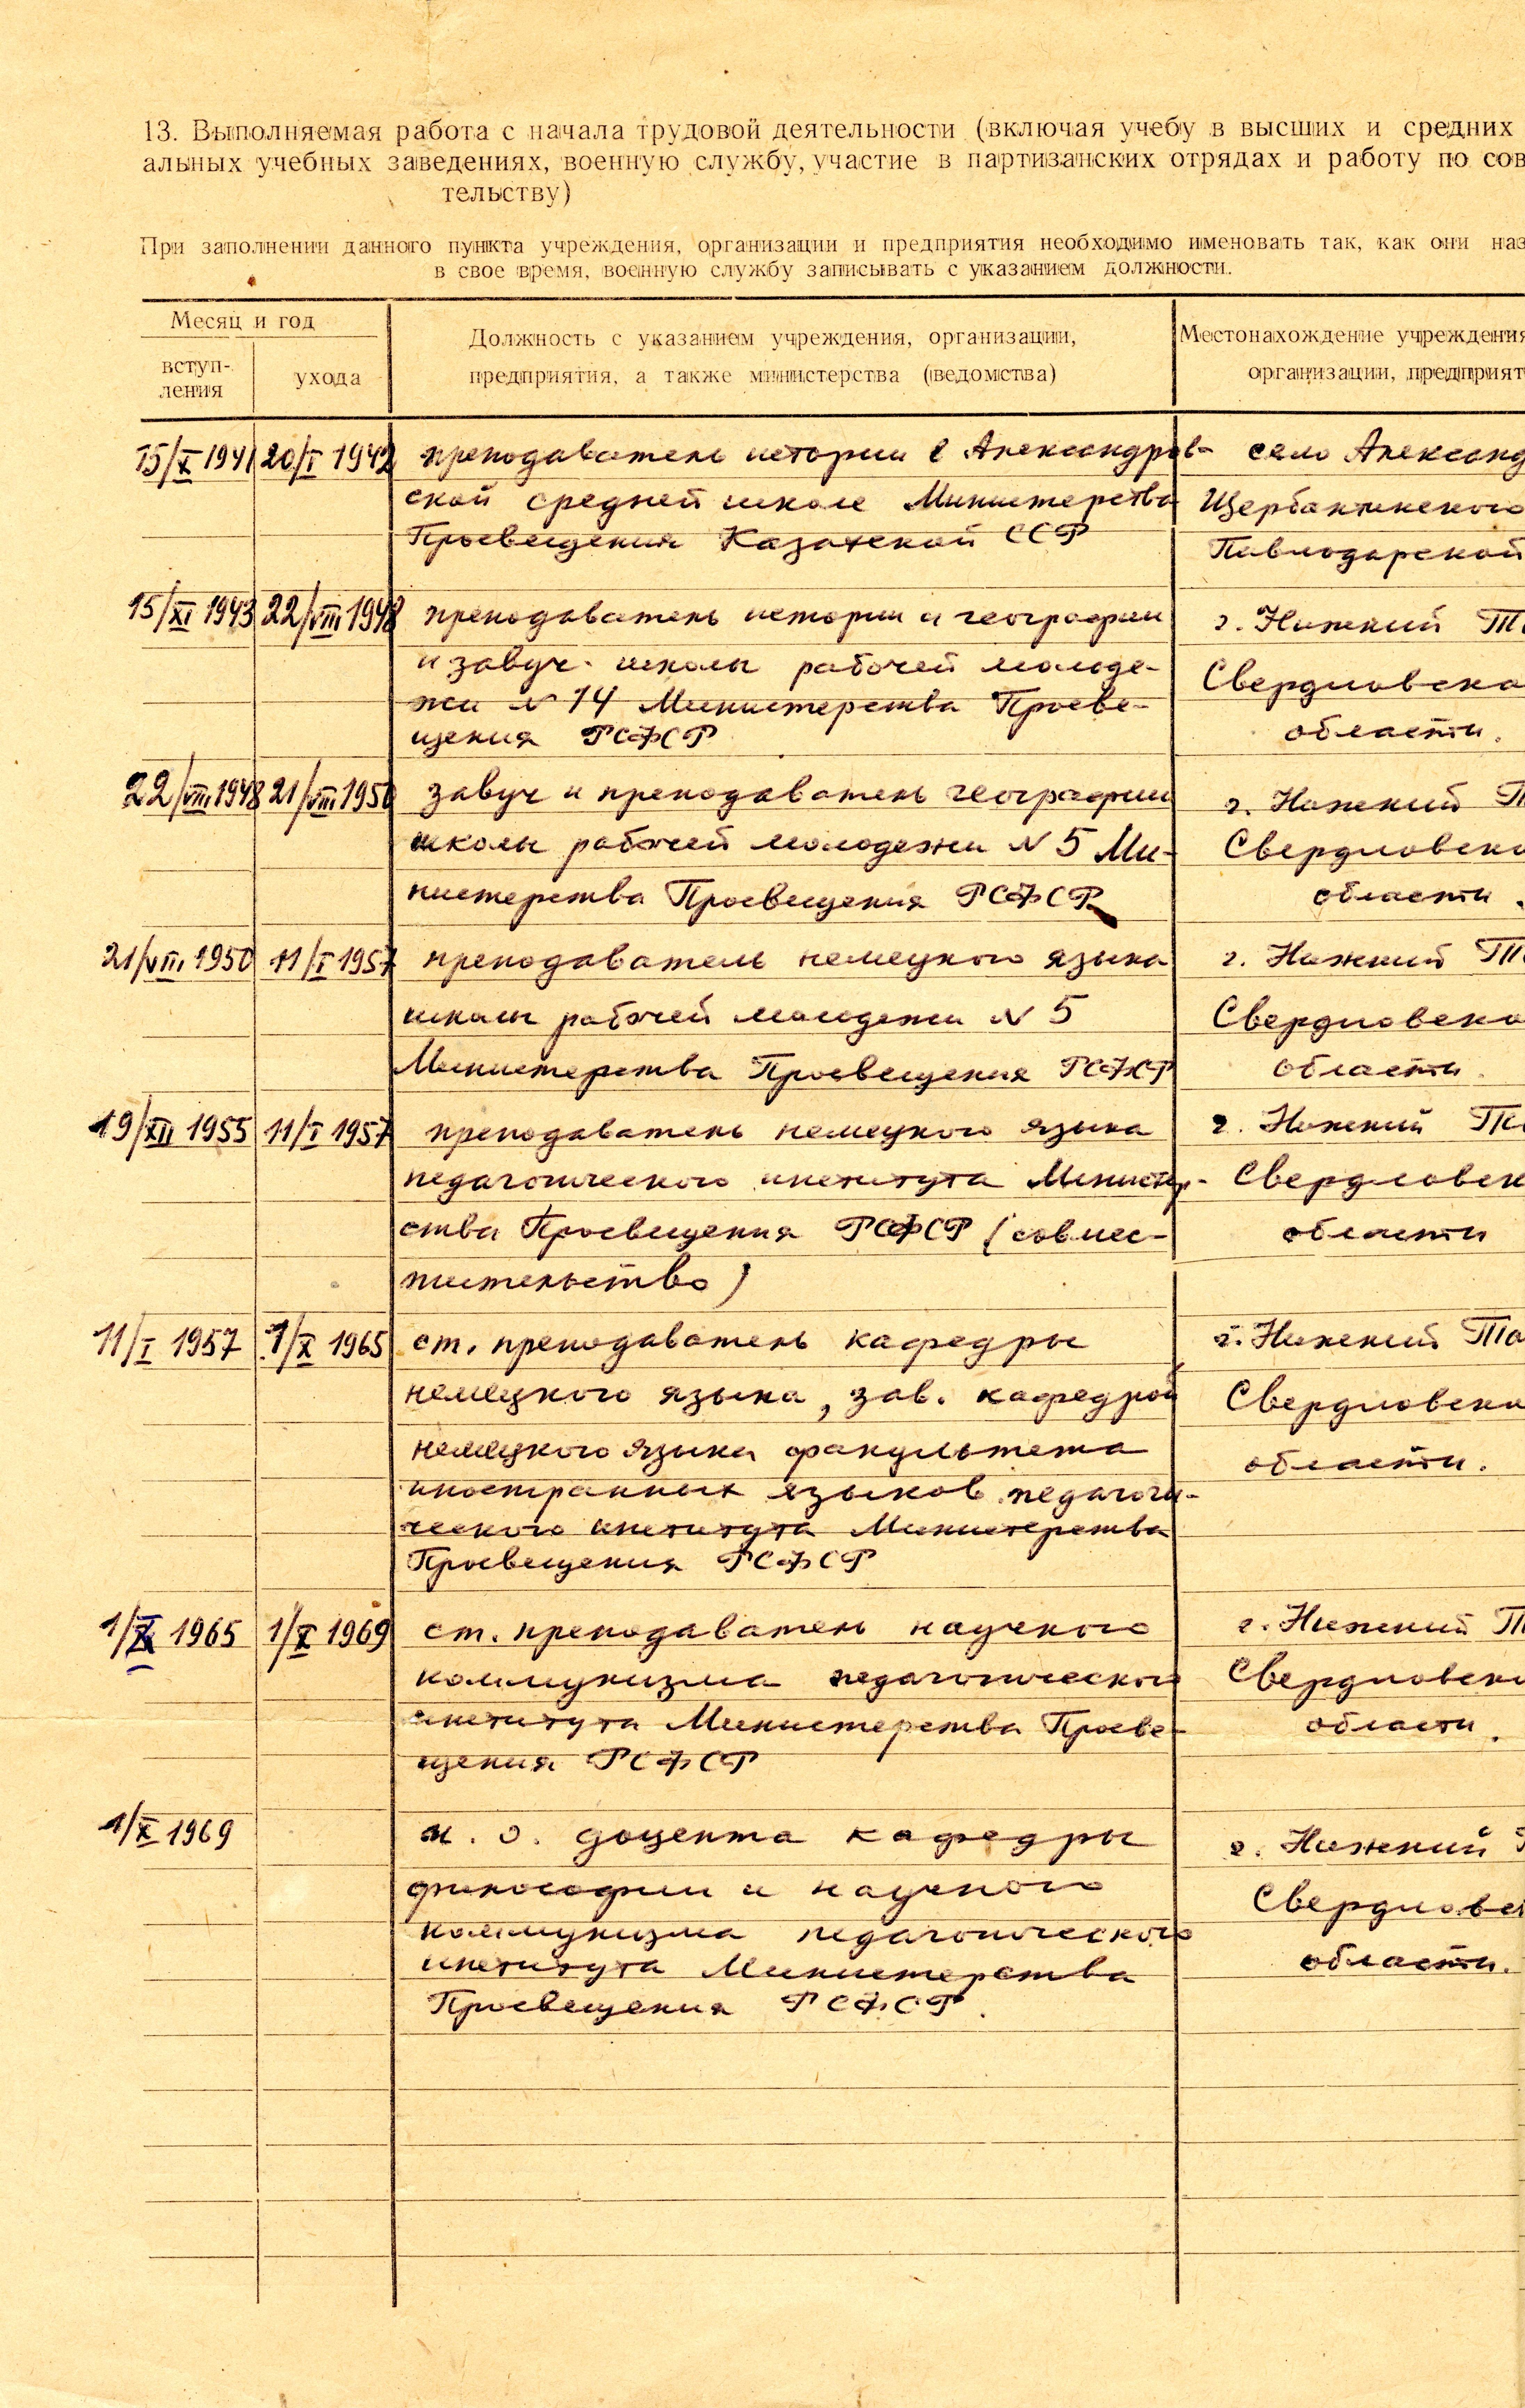 13. Выполняемая работа с начала трудовой деятельности (включая учебу в высших и средних
альных учебных заведениях, военную службу, участие в партизанских отрядах и работу по сов
тельству)
При заполнении данного пункта учреждения, организации и предприятия необходимо именовать так, как они наз
в свое время, военную службу записывать с указанием должности.
Месяц и год
вступ-
ления
ухода
Должность с указанием учреждения, организации,
предприятия, а также министерства (ведомства)
Местонахождение учреждения
организации, предприят
15/X 1941 20/I 1942 преподаватель истории в Александров- село Александ
ской средней школе Министерства Щербактинского
Просвещения Казахской ССР Павлодарской
15/XI 1943 22/VIII 1948 преподаватель истории и географии г. Нижний Т
и завуч школы рабочей молоде- Свердловско
жи N 14 Министерства Просве- области.
щения РСФСР
22/VIII 1948 21/VIII 1950 завуч и преподаватель географии г. Нижний Т
школы рабочей молодежи N 5 Ми- Свердловско
нистерства Просвещения РСФСР области.
21/VIII 1950 11/I 1957 преподаватель немецкого языка г. Нижний Т
школы рабочей молодежи N 5 Свердловско
Министерства Просвещения РСФСР области.
19/XII 1955 11/I 1957 преподаватель немецкого языка г. Нижний Т
педагогического института Министер- Свердловск
ства Просвещения РСФСР (совмес- области
тительство)
11/I 1957 1/X 1965 ст. преподаватель кафедры г. Нижний Та
немецкого языка, зав. кафедрой Свердловско
немецкого языка факультета области.
иностранных языков педагоги-
ческого института Министерства
Просвещения РСФСР
1/X 1965 1/X 1969 ст. преподаватель научного г. Нижний Т
коммунизма педагогического Свердловско
института Министерства Просве- области.
щения РСФСР
1/X 1969 и. о. доцента кафедры г. Нижний
философии и научного Свердловс
коммунизма педагогического области.
института Министерства
Просвещения РСФСР.